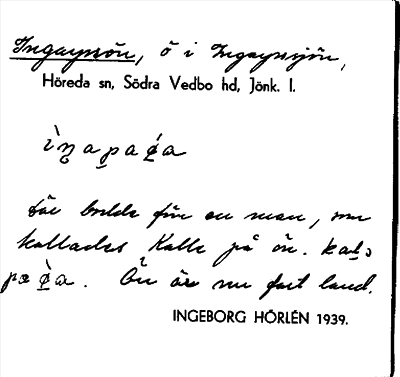 Ingarpsön, ö i Ingarpssjön,
Höreda sn, Södra Vedbo hd, Jönk. l.
där bodde förr en man, som
kallades Kalle på ön.
Ön är nu fast land.
INGEBORG HÖRLÉN 1939.